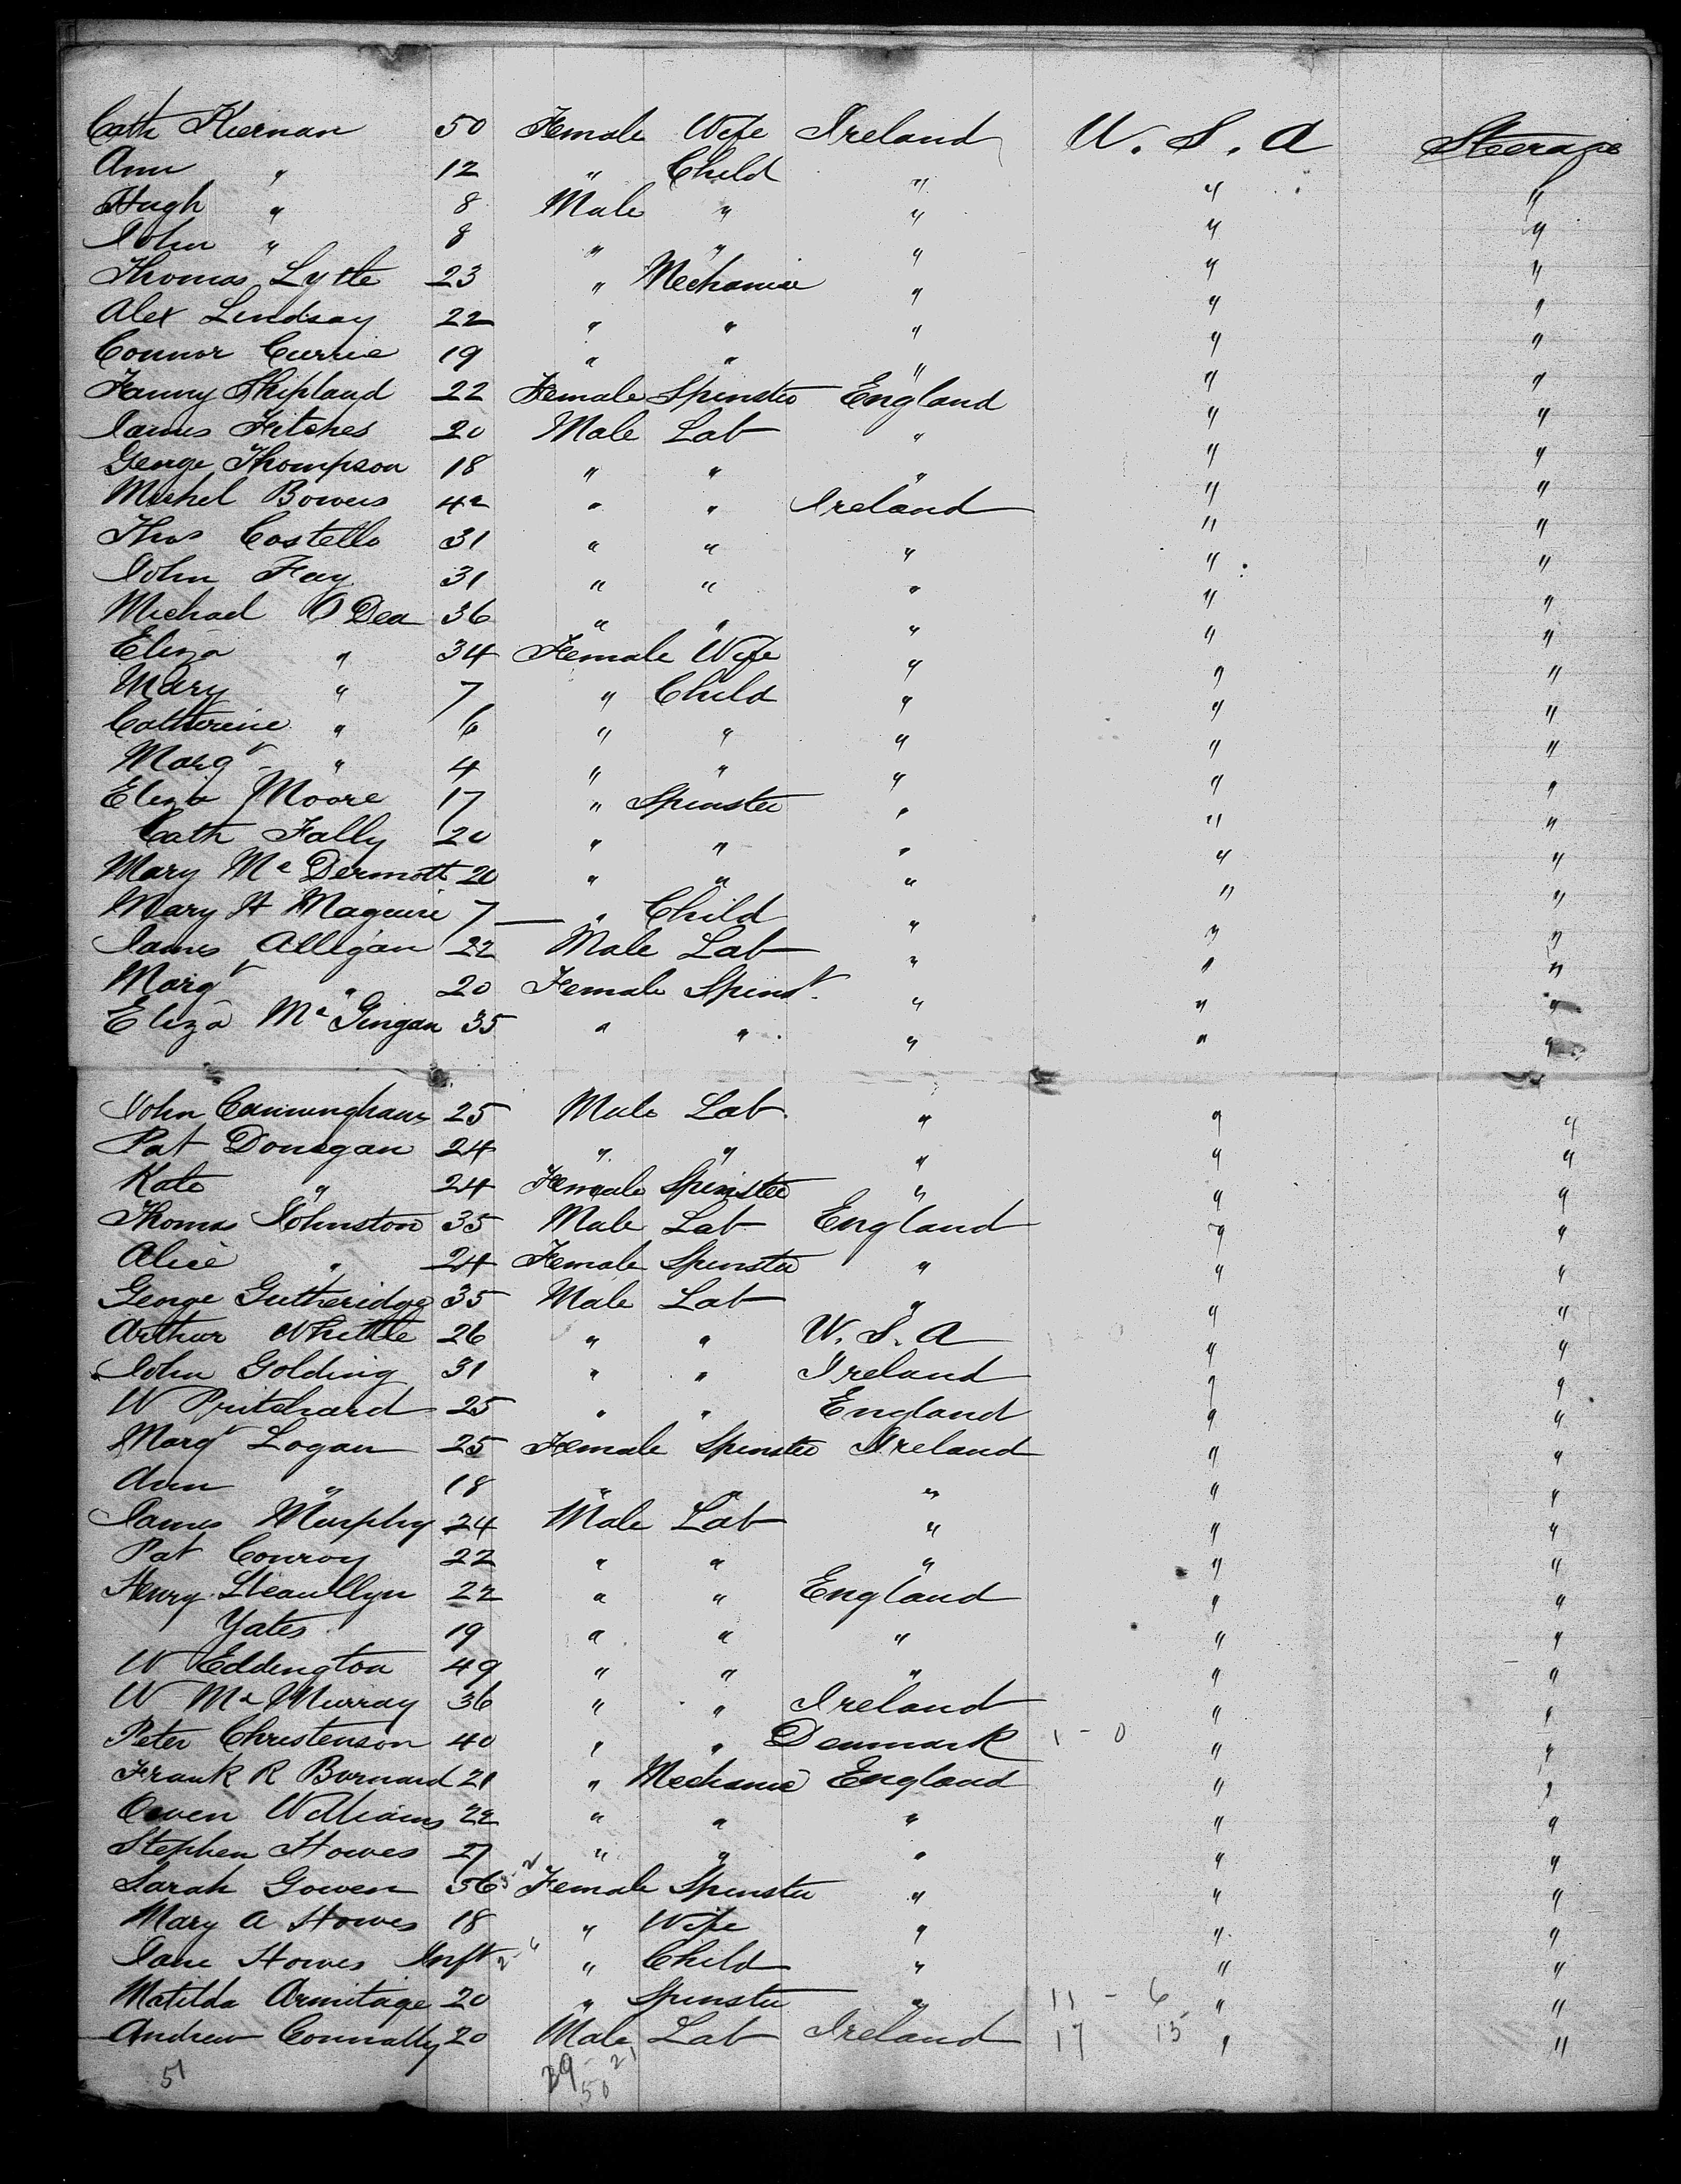 Cath Kiernan 50 Female Wife Ireland U.S.A Steerage
Ann " 12 " Child " " "
Hugh " 8 Male " " " "
John " 8 " " " " "
Thomas Lytle 23 " Mechanic " " "
Alex Lindsay 22 " " " " "
Connor Currie 19 " " " " "
Fanny Shipland 22 Female Spinster England " "
James Fitches 20 Male Lab " " "
George Thompson 18 " " " " "
Michel Bowers 42 " " Ireland " "
Thos Costello 31 " " " " "
John Fay 31 " " " " "
Michael O Dea 36 " " " " "
Eliza " 34 Female Wife " " "
Mary " 7 " Child " " "
Catherine " 6 " " " " "
Margt " 4 " " " " "
Eliza Moore 17 " Spinster " " "
Cath Fally 20 " " " " "
Mary Mc Dermott 20 " " " " "
Mary A Maguire 7 " Child " " "
James Alligan 22 Male Lab " " "
Margt " 20 Female Spinst " " "
Eliza Mc Gingan 35 " " " " "
John Cunningham 25 Male Lab " " "
Pat Donegan 24 " " " " "
Kate " 24 Female Spinster " " "
Thomas Johnston 35 Male Lab England " "
Alice " 24 Female Spinster " " "
George Gutheridge 35 Male Lab " " "
Arthur Whittle 26 " " U.S.A " "
John Golding 31 " " Ireland " "
W Pritchard 25 " " England " "
Margt Logan 25 Female Spinster Ireland " "
Ann " 18 " " " " "
James Murphy 24 Male Lab " " "
Pat Conroy 22 " " " " "
Henry Lleaullyn 22 " " England " "
Yates 19 " " " " "
W Eddington 49 " " " " "
W Mc Murray 36 " " Ireland " "
Peter Christenson 40 " " Denmark 1 - 0 " "
Frank R Burnard 21 " Mechanic England " "
Owen Williams 22 " " " " "
Stephen Howes 27 " " " " "
Sarah Gowen 56 Female Spinster " " "
Mary A Howes 18 " Wife " " "
Jane Howes Inft " Child " " "
Matilda Armitage 20 " Spinster " 11 - 6 " "
Andrew Connally 20 Male Lab Ireland 17 15 " "
51 29 - 21
50